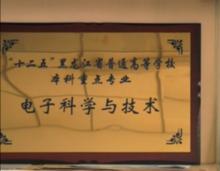 "十二五"黑龙江省普通高等学校
本科重点专业
电子科学与技术